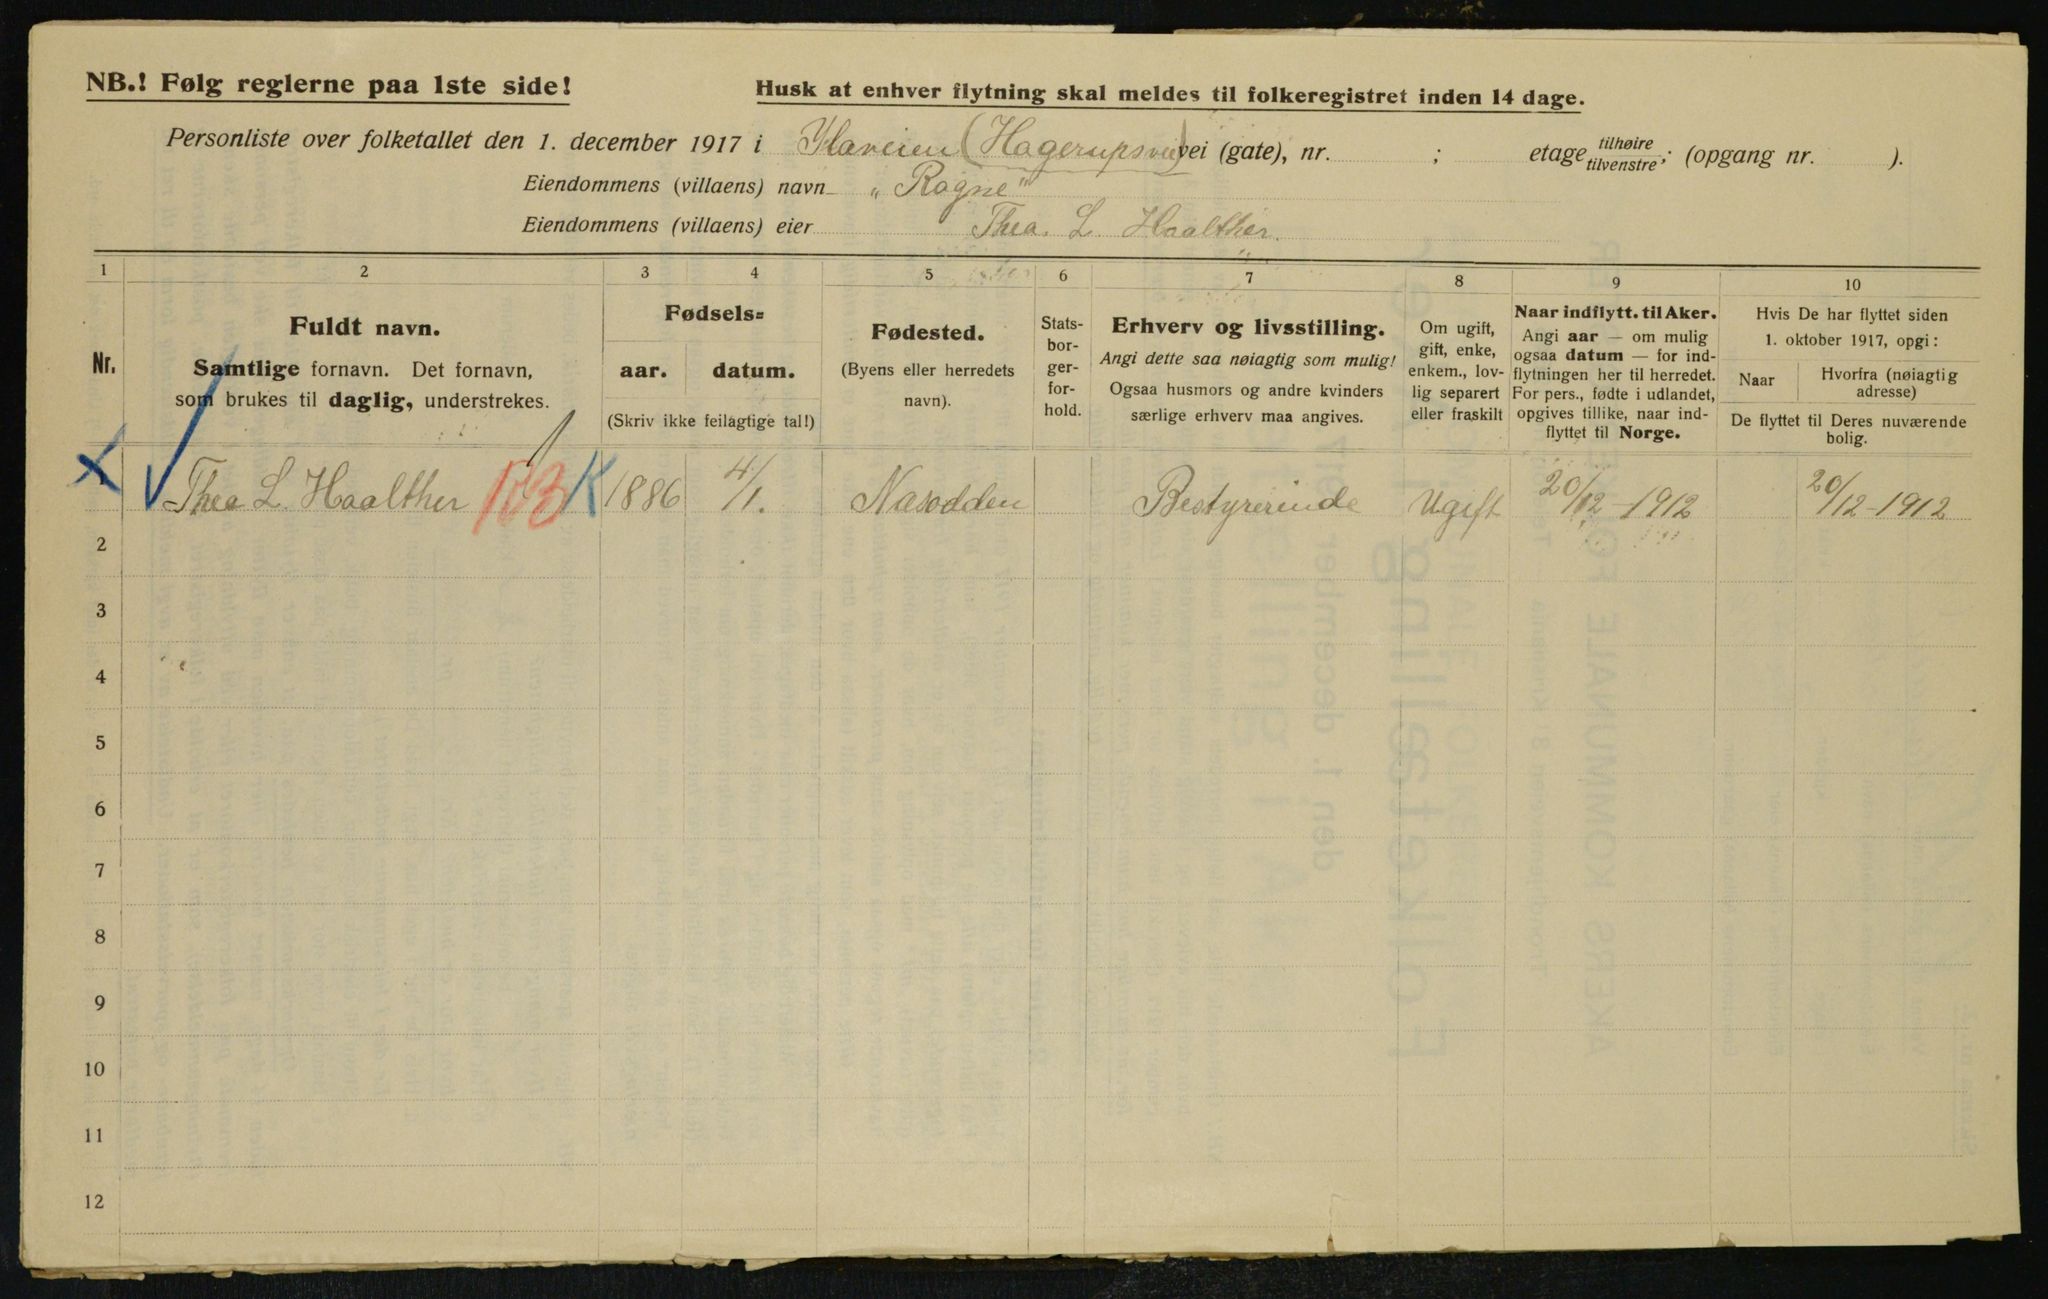 NB.! Følg reglerne paa 1ste side!
Husk at enhver flytning skal meldes til folkeregistret inden 14 dage.
Personliste over folketallet den 1. december 1917 i Ylaveien (Hagerupsvei) vei (gate), nr. ; etage tilhøire tilvenstre; (opgang nr. ).
Eiendommens (villaens) navn „Ragne"
Eiendommens (villaens) eier Thea. L. Haalther.
1 2 3 4 5 6 7 8 9 10
Nr.
Fuldt navn.
Samtlige fornavn. Det fornavn,
som brukes til daglig, understrekes.
Fødsels=
aar. datum.
(Skriv ikke feilagtige tal!)
Fødested.
(Byens eller herredets
navn).
Stats-
bor-
ger-
for-
hold.
Erhverv og livsstilling.
Angi dette saa nøiagtig som mulig!
Ogsaa husmors og andre kvinders
særlige erhverv maa angives.
Om ugift,
gift, enke,
enkem., lov-
lig separert
eller fraskilt
Naar indflytt. til Aker.
Angi aar — om mulig
ogsaa datum — for ind-
flytningen her til herredet.
For pers., fødte i udlandet,
opgives tillike, naar ind-
flyttet til Norge.
Hvis De har flyttet siden
1. oktober 1917, opgi:
Naar
Hvorfra (nøiagtig
adresse)
De flyttet til Deres nuværende
bolig.
1 Thea L. Haalther 103 K 1886 4/1. Næsodden Bestyrerinde Ugift 20/12-1912 20/12-1912
2
3
4
5
6
7
8
9
10
11
12